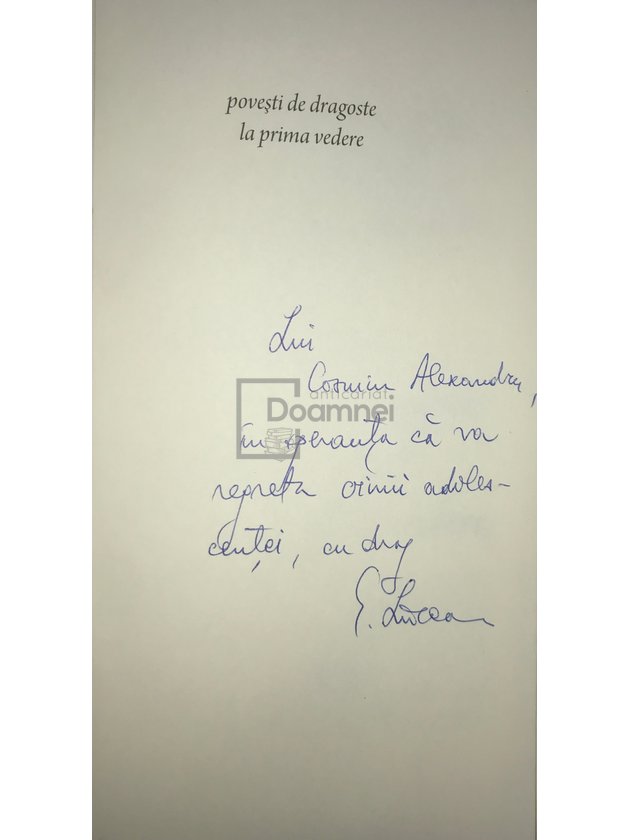 povești de dragoste
la prima vedere
Lui
Cosmin Alexandru,
anticariat
Doamnei
în speranța că va
regreta oimii adoles-
cenței, cu drag
E.